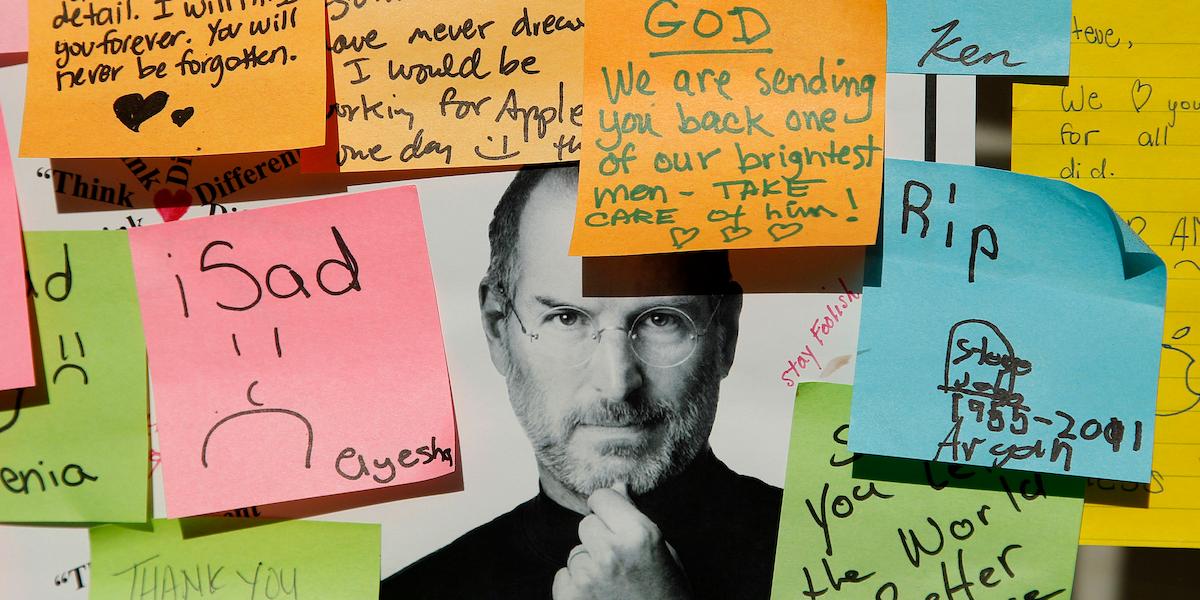 detail. I will
you forever. You will
never be forgotten.
never dream
I would be
working for Apple
one day
GOD
We are sending
you back one
of our brightest
men - TAKE
CARE of him!
Ken
Steve,
We ♡ you
for all
did.
"Think
Different
iSad
ayesha
stay Foolish
Rip
Steve
Jobs
1955-2011
Aryan
enia
THANK YOU
you
the World
Better